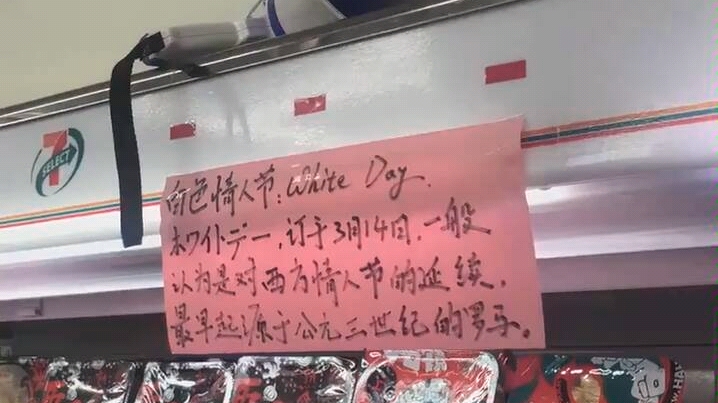 7
SELECT
白色情人节:White Day.
ホワイトデー,订于3月14日,一般
认为是对西方情人节的延续,
最早起源于公元三世纪的罗马。